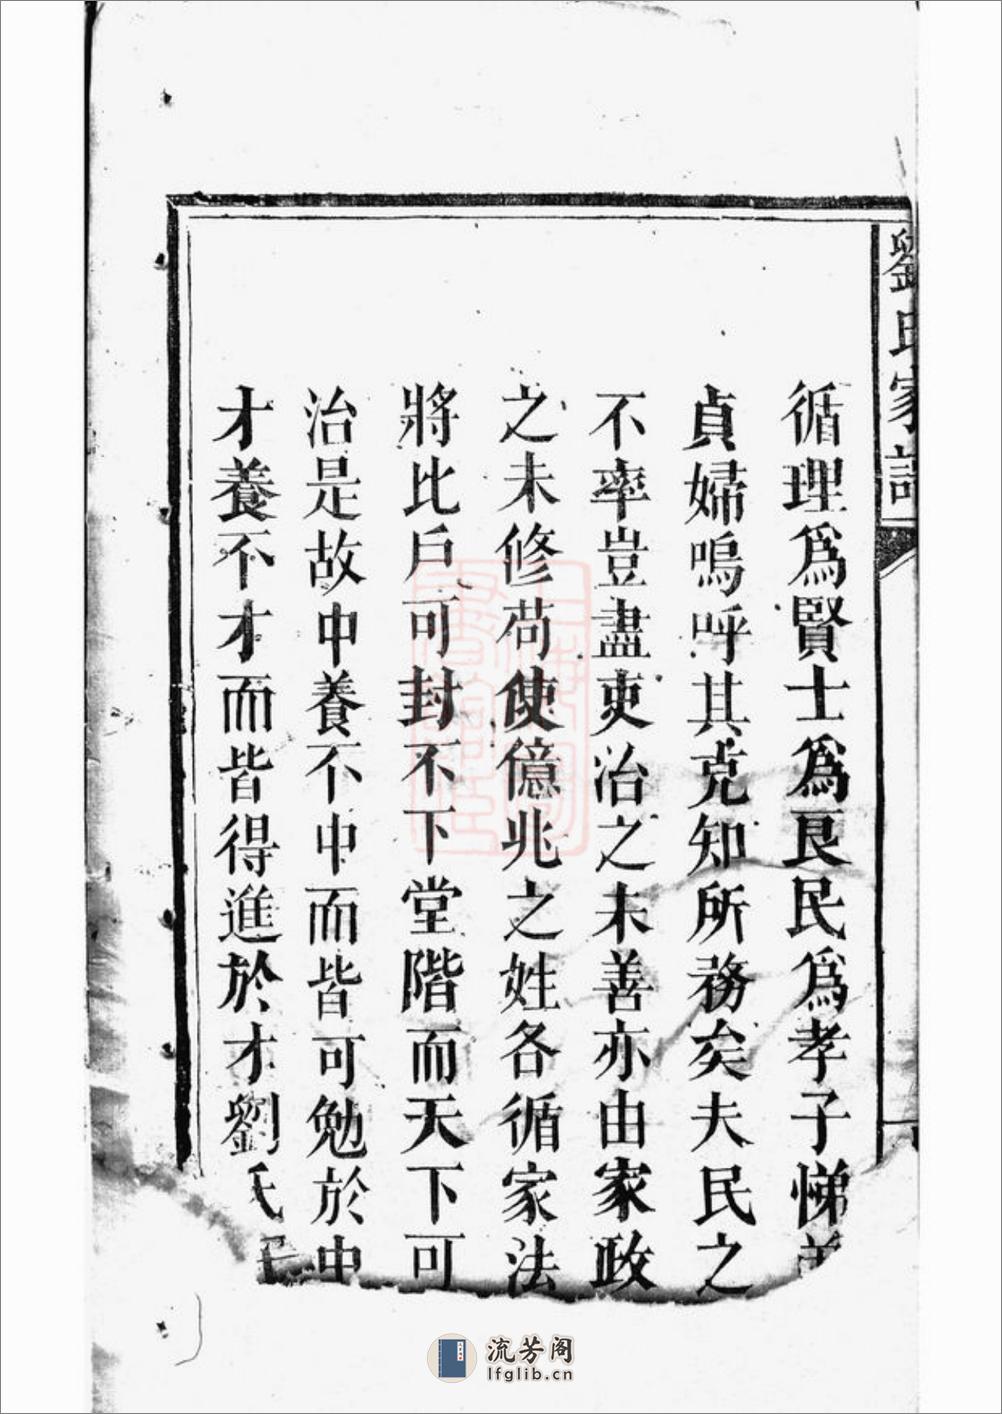 劉氏家譜
循理爲賢士爲良民爲孝子悌弟
貞婦嗚呼其克知所務矣夫民之
不率豈盡吏治之未善亦由家政
之未修苟使億兆之姓各循家法
將比戶可封不下堂階而天下可
治是故中養不中而皆可勉於中
才養不才而皆得進於才劉氏
流芳阁
lfglib.cn